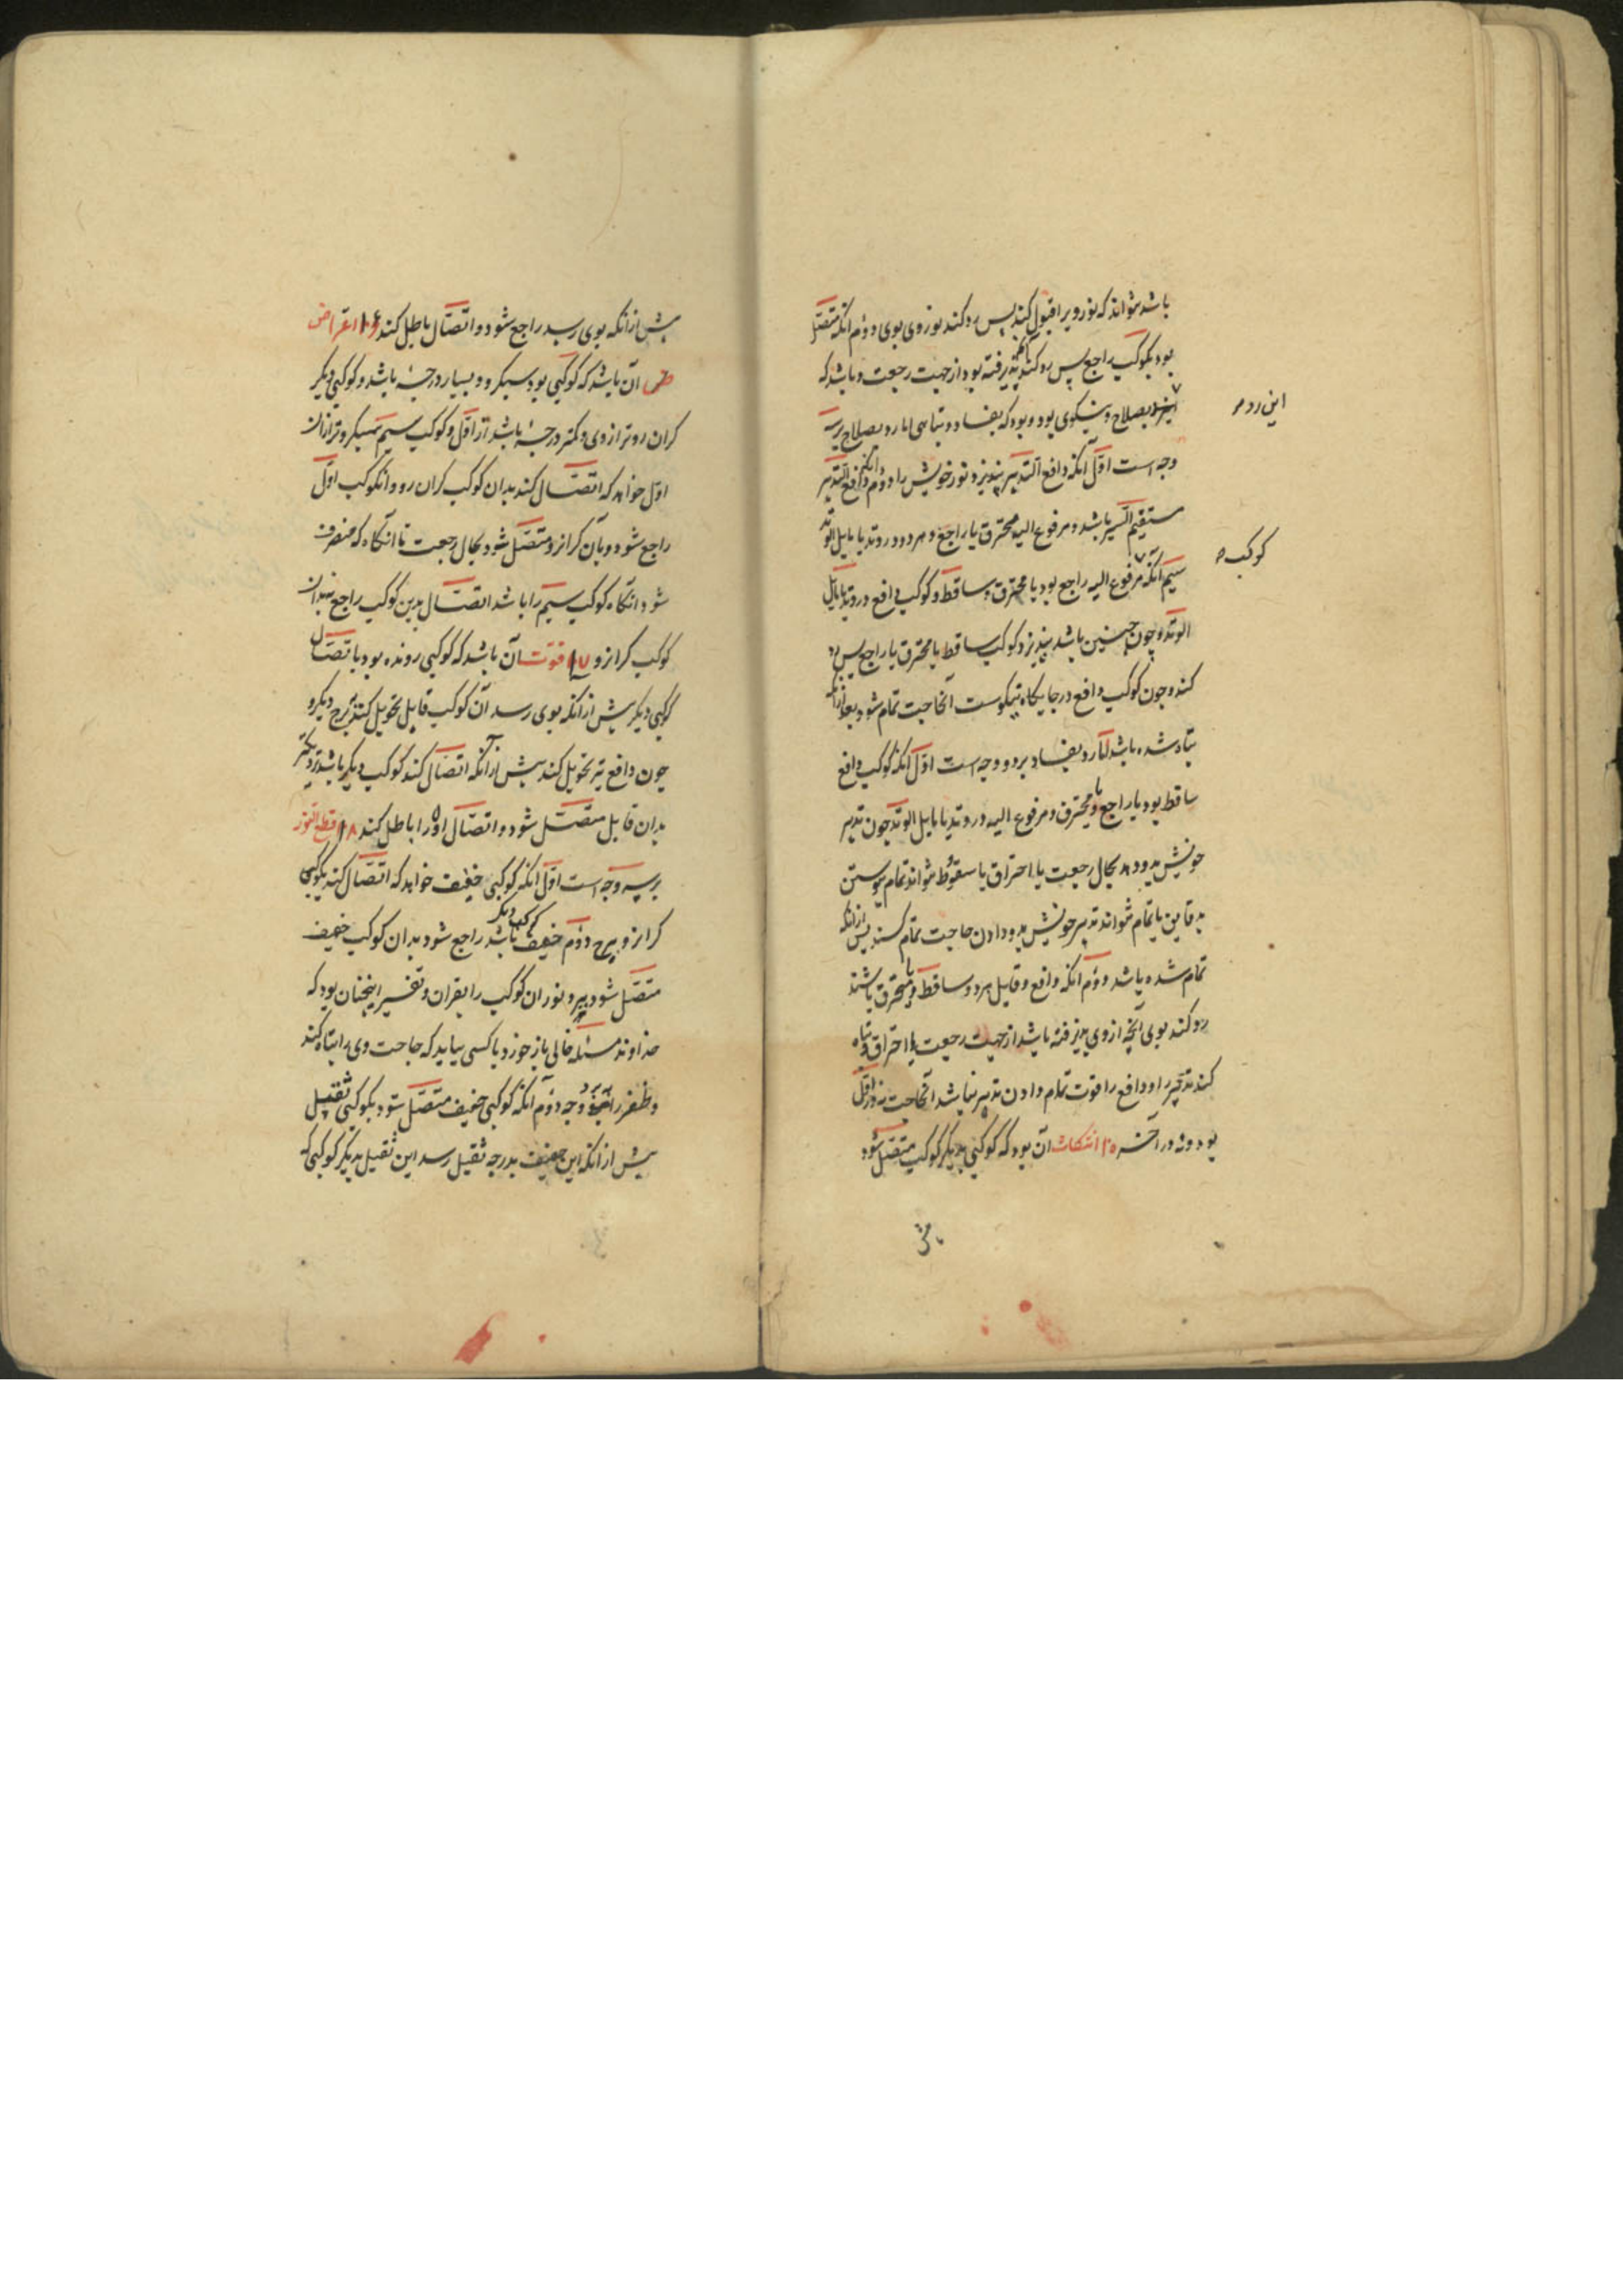 باشد نتواند که نور ویرا قبول کند پس رد کند نور وی بوی دوّم آنکه متّصل
بود بکوکب راجع پس رد کند آنکه پذیرفته بود از جهت رجعت و باشد که
بصلاح و نیکوی بود و بود که بفساد و تباهی اما رد بصلاح بر سه
این رد
وجه است اوّل آنکه دافع التدبیر بپذیرد نور خویش را دوّم آنکه دافع التدبیر
مستقیم السیر باشد و مرفوع الیه محترق یا راجع و هر دو در وتد یا مایل الوتد
سیم آنکه مرفوع الیه راجع بود یا محترق و ساقط و کوکب دافع در وتد یا مایل
کوکب
الوتد و چون چنین باشد بپذیرد کوکب ساقط یا محترق یا راجع پس رد
کند و چون کوکب دافع در جایکاه نیکوست آنحاجت تمام شود بعد از آنکه
تباه شده باشد امّا رد بفساد بر دو وجه است اوّل آنکه کوکب دافع
ساقط بود یا راجع یا محترق و مرفوع الیه در وتد یا مایل الوتد چون تدبیر
خویش بدو دهد بحال رجعت یا احتراق یا سقوط نتواند تمام پیوستن
بدقایق یا تمام نتواند تدبیر خویش بدو دادن حاجت تمام کند پس از آنکه
تمام شده باشد دوّم آنکه دافع و قابل هر دو ساقط یا محترق باشند
رد کند بوی آنچه از وی پذیرفته باشد از جهت رجعت یا احتراق و تباه
کند تدبیر او و دافع را قوت تمام دادن تدبیر نباشد آنحاجت نه در اوّل
بود و نه در آخر ۱۵ انتکاث آن بود که کوکبی بدیکر کوکب متّصل شود
پیش از آنکه بوی رسد راجع شود و اتصّال باطل کند ۱۶ اعتراض
آن باشد که کوکبی بود سبکرو و بسیار درجه باشد و کوکبی دیکر
کران روتر از وی و کمتر درجه باشد از اوّل و کوکب سیم سبکروتر از آن
اوّل خواهد که اتصّال کند بدان کوکب کران رو و آنکوکب اوّل
راجع شود و بآن کرانرو متصّل شود بحال رجعت تا آنکاه که منصرف
شود آنکاه کوکب سیم را باشد اتصّال بدین کوکب راجع نه بدان
کوکب کرانرو ۱۷ فوت آن باشد که کوکبی رونده بود باتصّال
کوکبی دیکر پیش از آنکه بوی رسد آن کوکب قابل تحویل کند ببرج دیکر و
چون دافع نیز تحویل کند پیش از آنکه اتصّال کند کوکب دیکر باشد نزدیکتر
بدان قابل متصّل شود و اتصّال او را باطل کند ۱۸ قطع النور
بر سه وجه است اوّل آنکه کوکبی خفیف خواهد که اتصّال کند بکوکبی
کرانرو ببرج دوّم خفیف کوکب دیکر باشد راجع شود بدان کوکب خفیف
متصّل شود ببرد نور ان کوکب را بقران و تفسیر اینچنان بود که
خداوند مسئله خالی باز خورد با کسی بیاید که حاجت وی را تباه کند
و ظفر را ببرد وجه دوّم آنکه کوکبی خفیف متصّل شود بکوکبی ثقیل
پیش از آنکه این خفیف بدرجه ثقیل رسد این ثقیل بدیکر کوکبی که
پیش